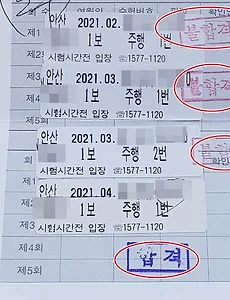 회 수
연월일
수험번호
확인
제1
안산 2021.02.
1보 주행 1번
불합격
제2
시험시간전 입장 ☏1577-1120
제3
안산 2021.03.
1보 주행 1번
불합격
제4
시험시간전 입장 ☏1577-1120
안산 2021.03.
회
1보 주행 2번
제1
시험시간전 입장 ☏1577-1120
확인
제2
안산 2021.04.
1보 주행 1번
제3
시험시간전 입장 ☏1577-1120
제4회
합격
제5회